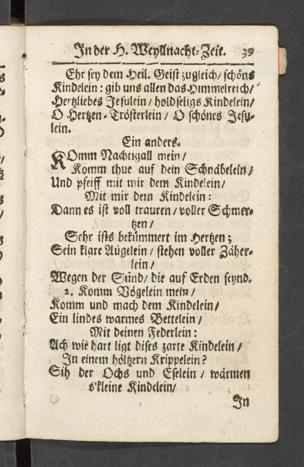 In der H. Weyhnacht-Zeit. 39
Ehr sey dem Heil. Geist zugleich / schöns
Kindelein: gib uns allen das Himmelreich /
Hertzliebes Jesulein / holdseligs Kindelein /
O Hertzen-Trösterlein / O schönes Jesu-
lein.
Ein anders.
KOmm Nachtigall mein /
Komm thue auf dein Schnäbelein /
Und pfeiff mit mir dem Kindelein /
Mit mir dem Kindelein:
Dann es ist voll trauren / voller Schmer-
tzen /
Sehr ists bekümmert im Hertzen;
Sein klare Aügelein / stehen voller Zäher-
lein /
Wegen der Sünd / die auf Erden seynd.
2. Komm Vögelein mein /
Komm und mach dem Kindelein /
Ein lindes warmes Bettelein /
Mit deinen Federlein:
Ach wie hart ligt dises zarte Kindelein /
In einem höltzern Krippelein?
Sih der Ochs und Eselein / wärmen
s'kleine Kindelein /
In